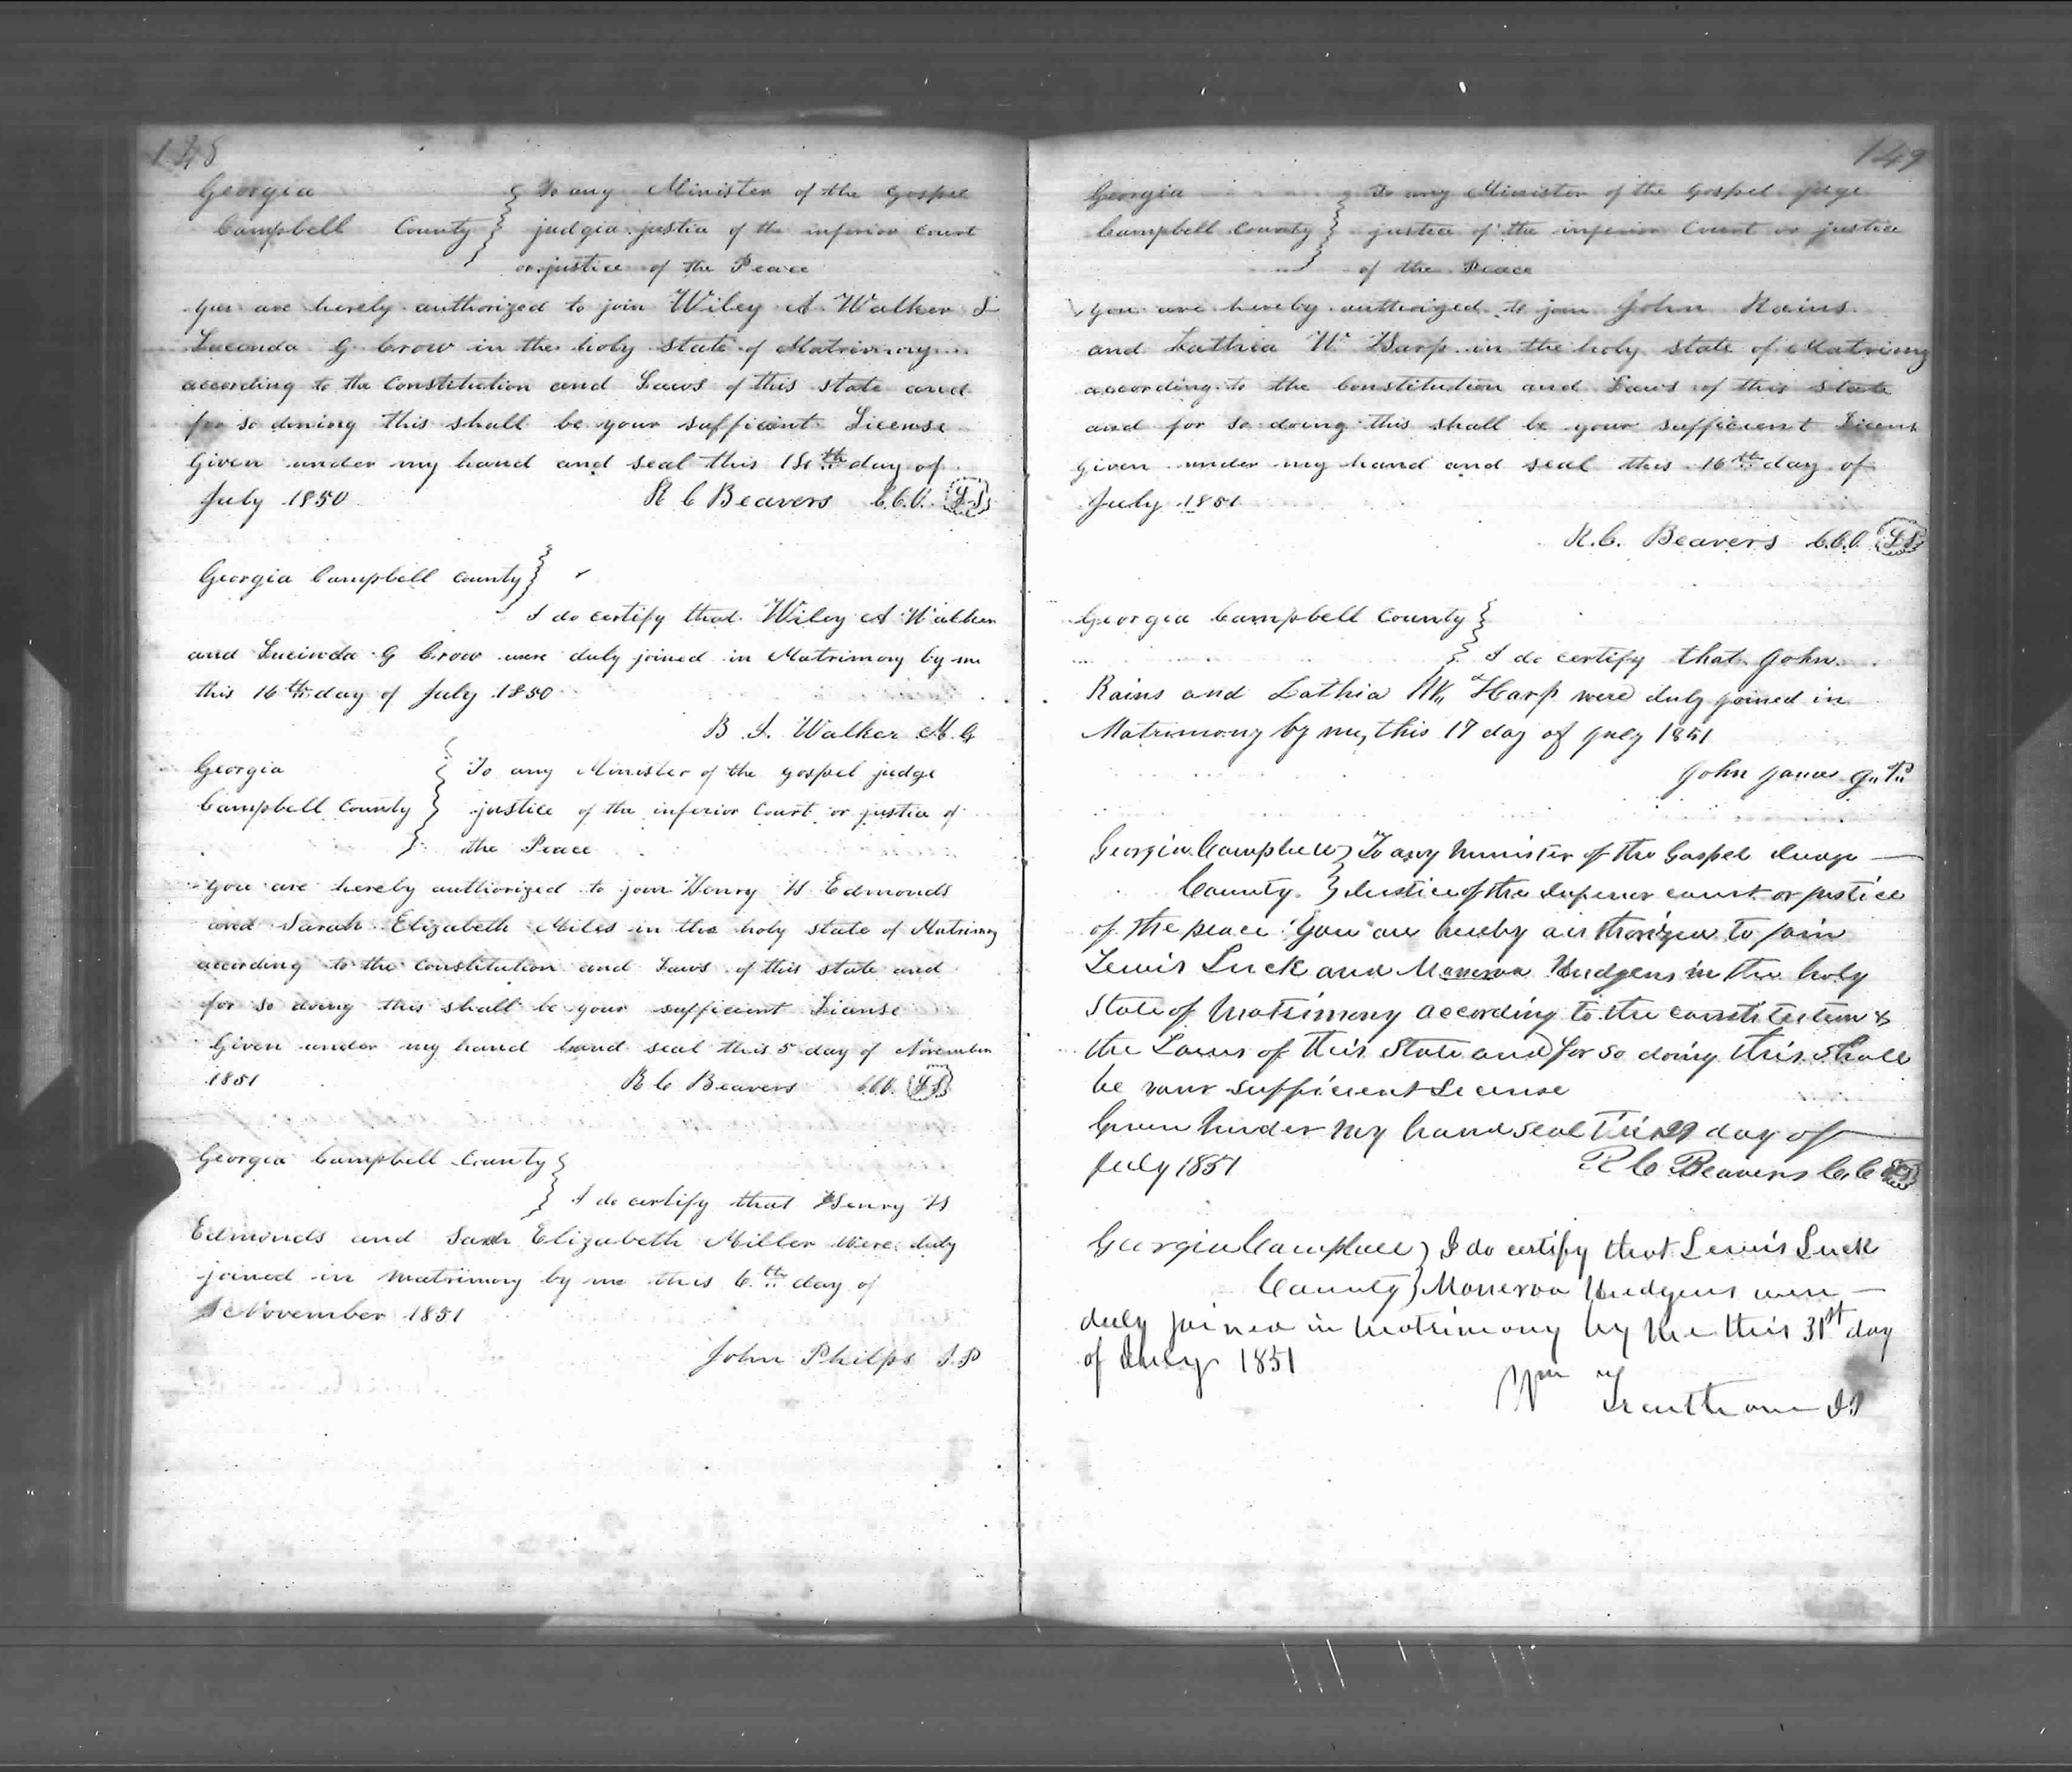 148
Georgia
Campbell County
To any Minister of the Gospel
judgia justia of the inferior court
or justice of the Peace
you are herely authorized to join Wiley A Walker &
Lucenda G Crow in the holy State of Matrimony
according to the Constitution and Laws of this state and
for so doning this shall be your sufficient License
Given under my hand and seal this day of
July 1850 R C Beavers C.C.O. LS
Georgia Campbell County
I do certify that Wiley A Walker
and Lucinda G Crow were duly joined in Matrimony by me
this 16th day of July 1850
B. S. Walker M.G
Georgia
Campbell County
To any Minister of the gospel judge
justice of the inferior Court or justia of
the Peace
you are hereby authorized to join Henry H Edmonds
and Sarah Elizabeth Miles in the holy state of Matrimony
according to the Constitution and Laws of this state and
for so doing this shall be your sufficient License
Given under my hand hand seal this 5 day of November
1851 R C Beavers C.C.O. LS
Georgia Campbell County
I do certify that Henry H
Edmonds and Sarah Elizabeth Miller were duly
joined in matrimony by me this 6th day of
November 1851
John Philps J.P
149
Georgia
Campbell County
To any Minister of the Gospel judge
justice of the inferior Court or justice
of the Peace
you are hereby authorized to join John Rains
and Lathia W Harp in the holy state of Matrimony
according to the Constitution and Laws of this state
and for so doing this shall be your sufficient Licens
given under my hand and seal this 16th day of
July 1851
R.C. Beavers C.C.O. LS
Georgia Campbell County
I do certify that John
Rains and Lathia W Harp were duly joined in
Matrimony by me, this 17 day of July 1851
John J.P.
Georgia Campbell To any Minister of the Gospel Judge
County Justice of the Superior court or justice
of the peace You are hereby authorized to join
Lewis Luck and Manerva Hudgens in the holy
State of Matrimony according to the constitution &
the Laws of this State and for so doing this shall
be your sufficient License
Given Under My hand seal this 29 day of
July 1851 R C Beavers C.C
Georgia Campbell I do certify that Lewis Luck
County Manerva Hudgens were
duly joined in Matrimony by me this 31st day
of July 1851
Wm